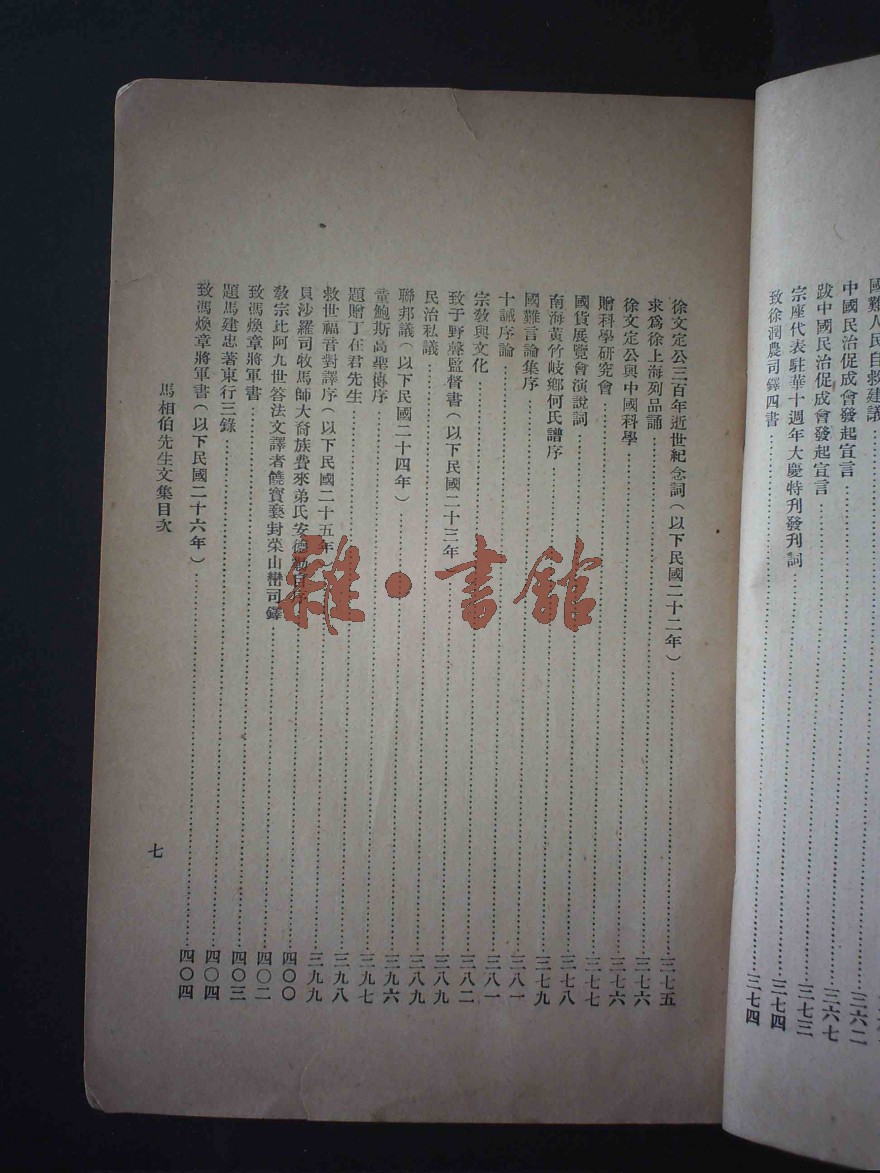 國難人民自救建議……三六二
中國民治促成會發起宣言……三六七
跋中國民治促成會發起宣言……三七三
宗座代表駐華十週年大慶特刊發刊詞……三七四
致徐潤農司鐸四書……三七四
徐文定公三百年逝世紀念詞(以下民國二十二年)……三七五
求爲徐上海列品誦……三七六
徐文定公與中國科學……三七六
贈科學研究會……三七七
國貨展覽會演說詞……三七八
南海黃竹岐鄉何氏譜序……三七九
國難言論集序……三八一
十誡序論……三八一
宗敎與文化……三八二
致于野聲監督書(以下民國二十三年)……三八九
民治私議……三八九
聯邦議(以下民國二十四年)……三九六
童鮑斯高聖傳序……三九七
題贈丁在君先生……三九八
救世福音對譯序(以下民國二十五年)……三九九
貝沙羅司牧馬師大裔族費來弟氏安德……四〇〇
敎宗比阿九世答法文譯者饒寶葊封榮山巒司鐸……四〇二
致馮煥章將軍書……四〇三
題馬建忠著東行三錄……四〇四
致馮煥章將軍書(以下民國二十六年)……四〇四
馬相伯先生文集目次
七
雜·書館